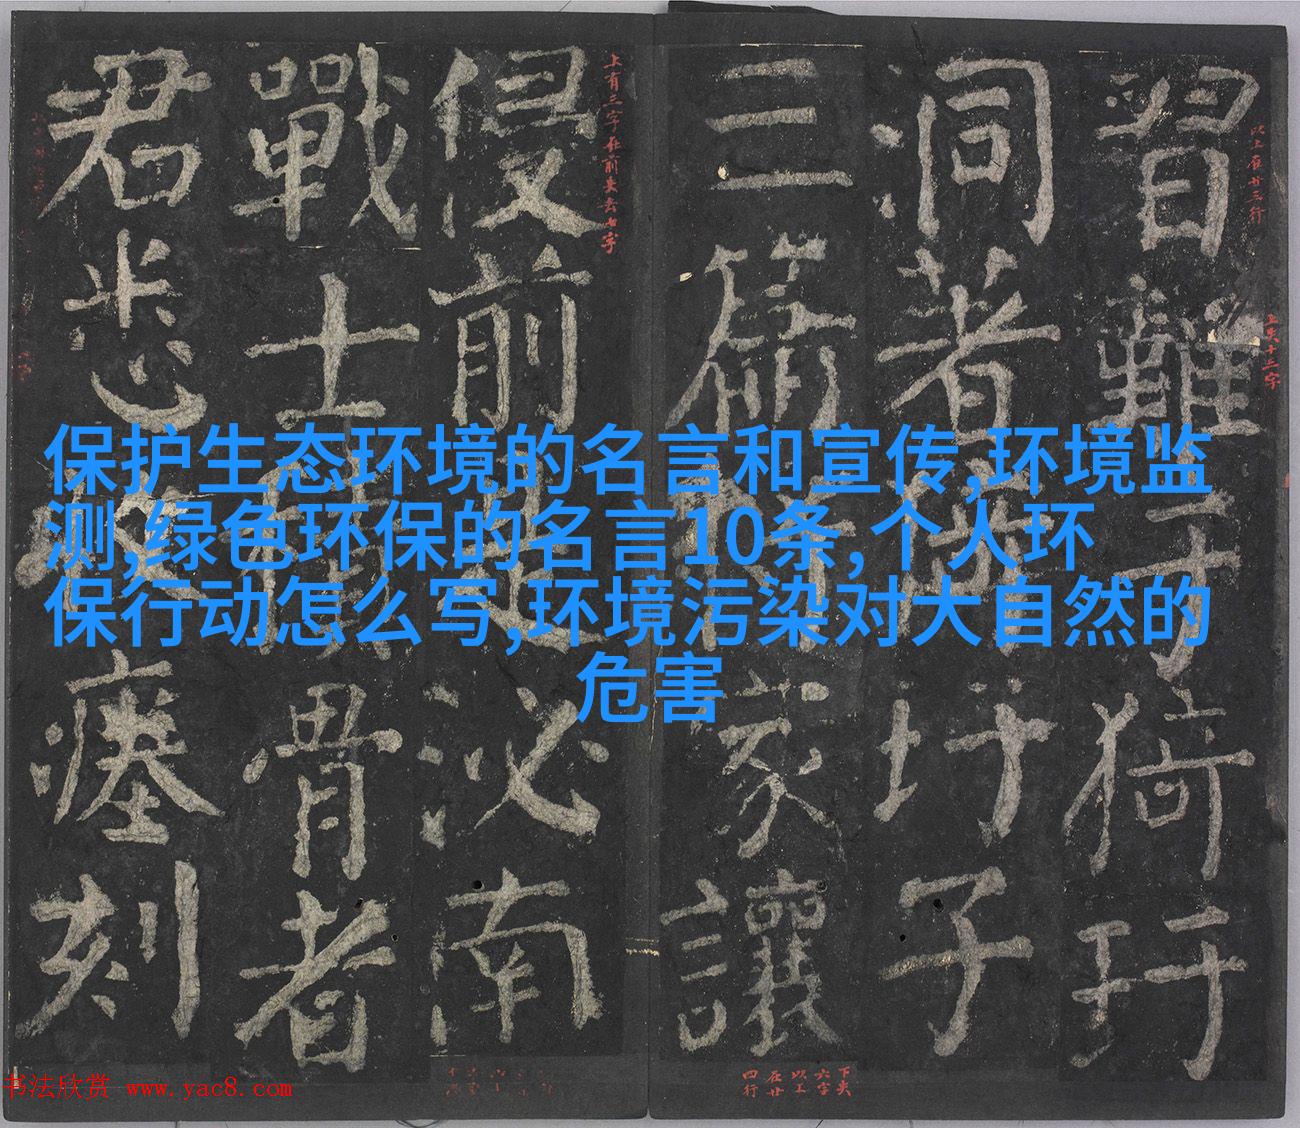 保护生态环境的名言和宣传,环境监
测,绿色环保的名言10条,个人环
保行动怎么写,环境污染对大自然的
危害
習難
子猗玗
洞著
玗子
三篇
家讓
侵前
泌南
戰士
骨者
君
瘞刻
上有三字在前
以上在廿三行
上失十三字
下失
六字
以上
在廿
四行
书法欣赏 www.yac8.com